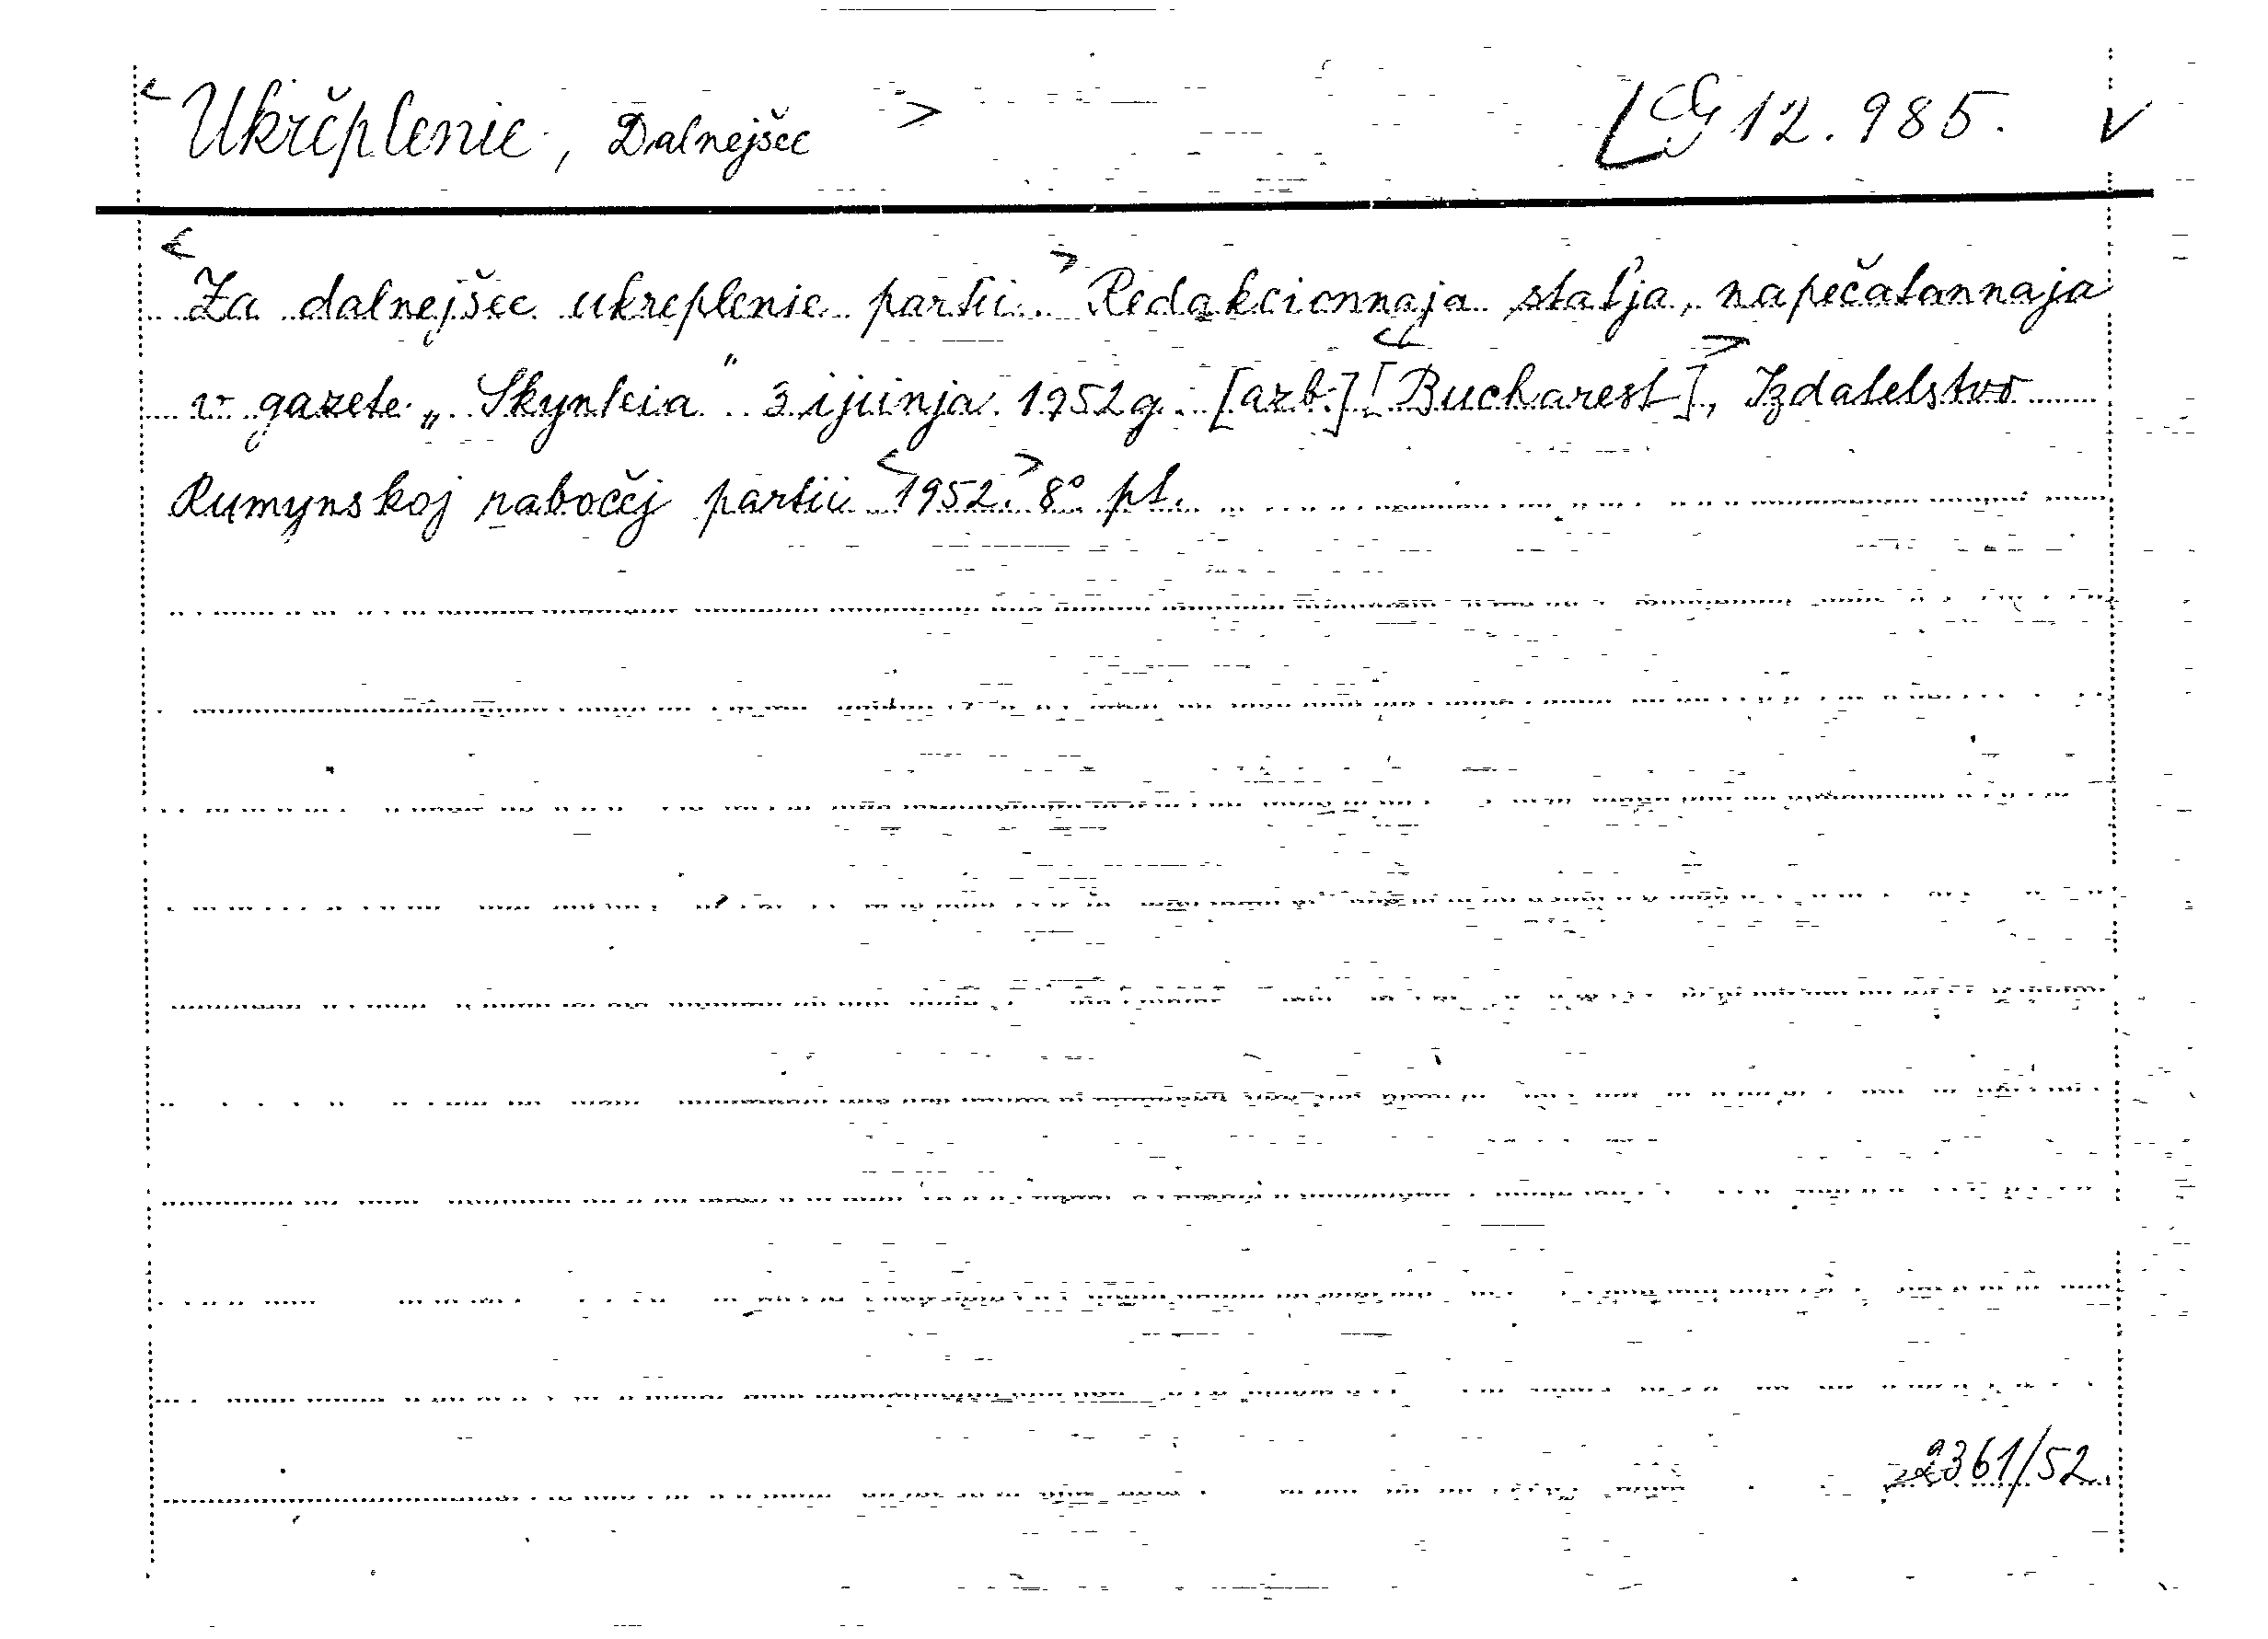 <Ukrěplenie, Dalnejšee> CG 12.985. V
<Za dalnejšee ukreplenie partii.> Redakcionnaja statja, napečatannaja
v gazete „Skynteia" 3 ijunja 1952 g. [azb.] <[Bucharest]>, Izdatelstvo
Rumynskoj rabočej partii <1952.> 8° pl.
2361/52.